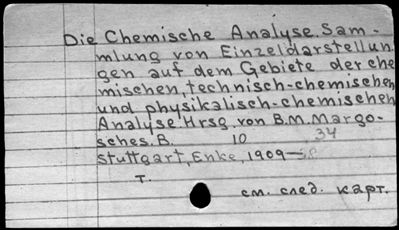 Die Chemische Analyse. Sam-
mlung von Einzeldarstellun
gen auf dem Gebiete der che
mischen, technisch-chemischen
und physikalisch-chemischen
Analyse. Hrsg. von B.M. Margo-
sches. B. 10 34
Stuttgart, Enke, 1909-
т.
см. след. карт.